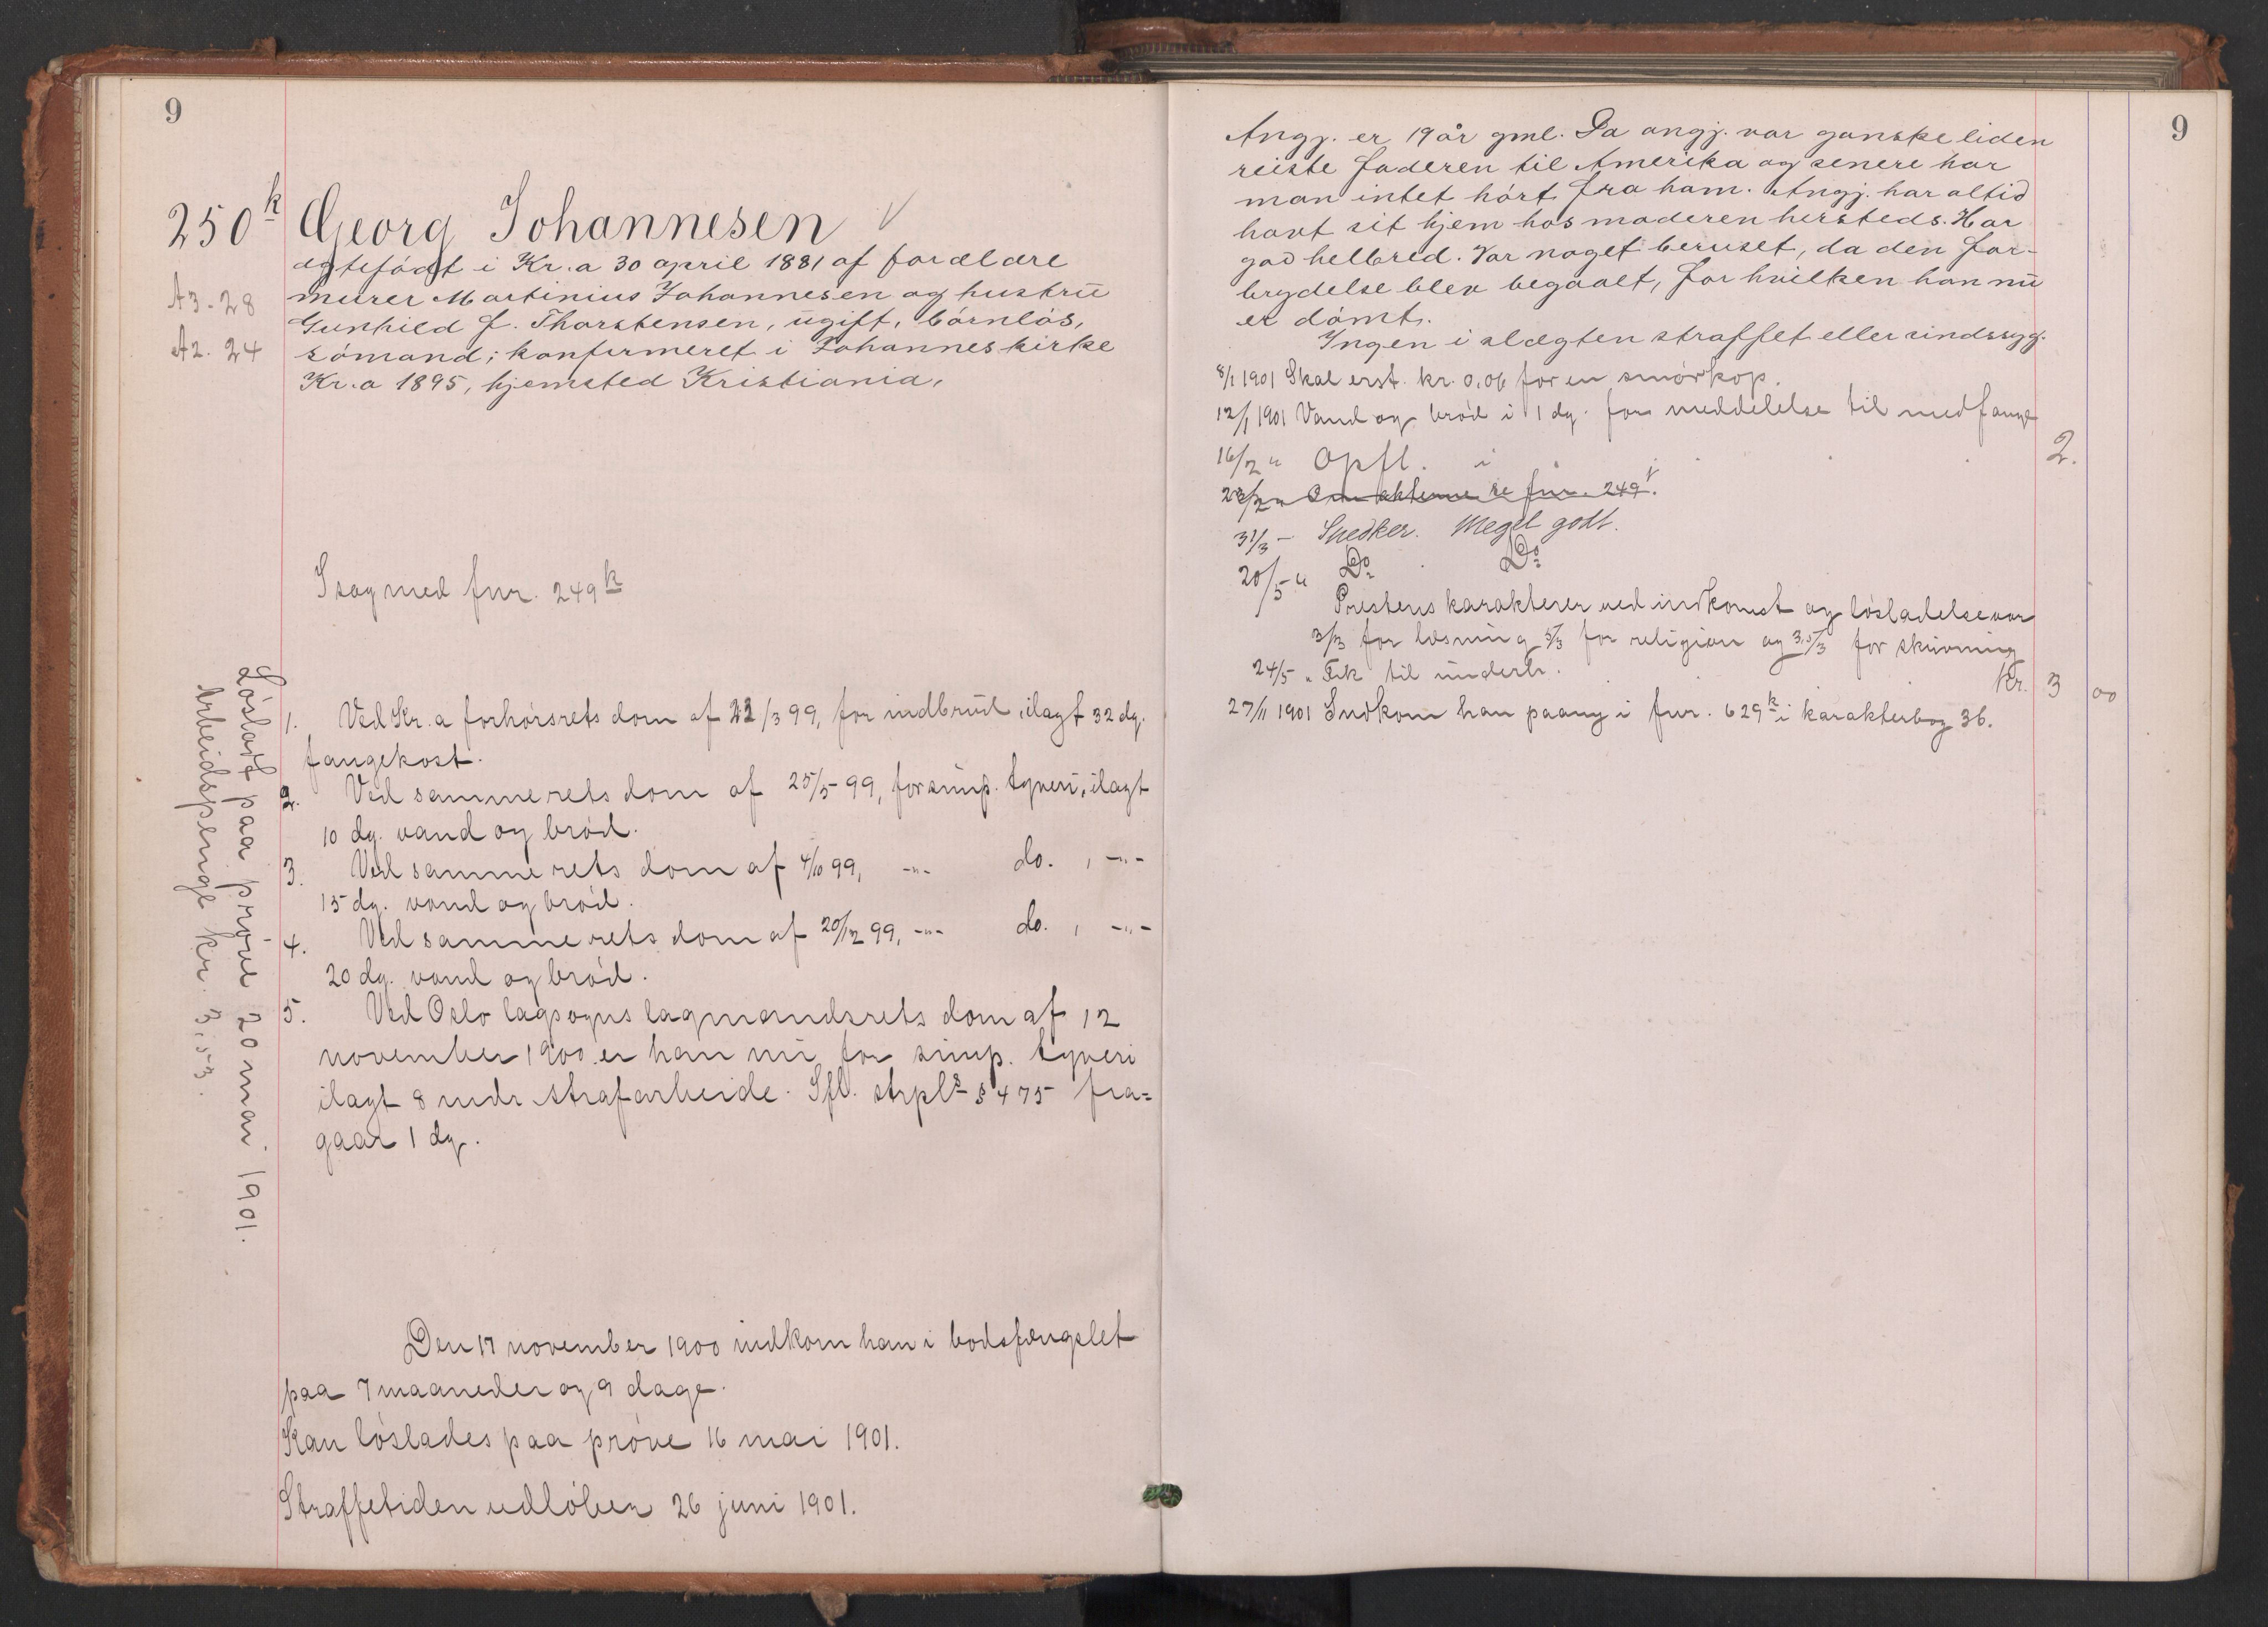 9
250k Georg Johannesen
ægtefödt i Kr.a 30 april 1881 af forældre
A3-28 murer Martinius Johannesen og hustru
Gunhild f. Thorstensen, ugift, börnlös,
A2. 24 sömand; konfirmeret i Johannes kirke
Kr.a 1895, hjemsted Kristiania.
I sag med fnr. 249k
1. Ved Kr.a forhörsrets dom af 22/3 99, for indbrud, ilagt 32 dg.
fangekost.
2. Ved samme rets dom af 25/5 99, for simp. tyveri, ilagt
10 dg. vand og bröd.
3. Ved samme rets dom af 4/10 99, -"- do. , -"-
15 dg. vand og bröd.
4. Ved samme rets dom af 20/12 99, -"- do. , -"-
20 dg. vand og bröd.
5. Ved Oslo lagsogns lagmandsrets dom af 12
november 1900 er han nu for simp. tyveri
ilagt 8 mdr strafarbeide. Ifl. strpls § 475 fra=
gaar 1 dg.
Lösladt paa pröve 20 mai 1901.
Arbeidspenge kr. 3,53.
Den 17 november 1900 indkom han i bodsfængslet
paa 7 maaneder og 9 dage.
Kan löslades paa pröve 16 mai 1901.
Straffetiden udlöber 26 juni 1901.
9
Angj. er 19 år gml. Da angj. var ganske liden
reiste faderen til Amerika og senere har
man intet hört fra ham. Angj. har altid
havt sit hjem hos moderen hersteds. Har
god helbred. Var noget beruset, da den for-
brydelse blev begaaet, for hvilken han nu
er dömt.
Ingen i slægten straffet eller sindssyg.
8/1 1901 Skal erst. kr. 0,06 for en smörkop.
12/1 1901 Vand og bröd i 1 dg. for meddelelse til medfange
16/2 " Opfl. i 2.
23/2 " Om akterne se fnr. 249k.
31/3 - Snedker. Meget godt.
20/5 " Do Do
Prestens karakterer ved indkomst og lösladelse var
3/3 for læsning 5/3 for religion og 3,5/3 for skrivning
24/5 " Fik til understr. Kr. 3 00
27/11 1901 Indkom han paany i fnr. 629k i karakterbog 36.